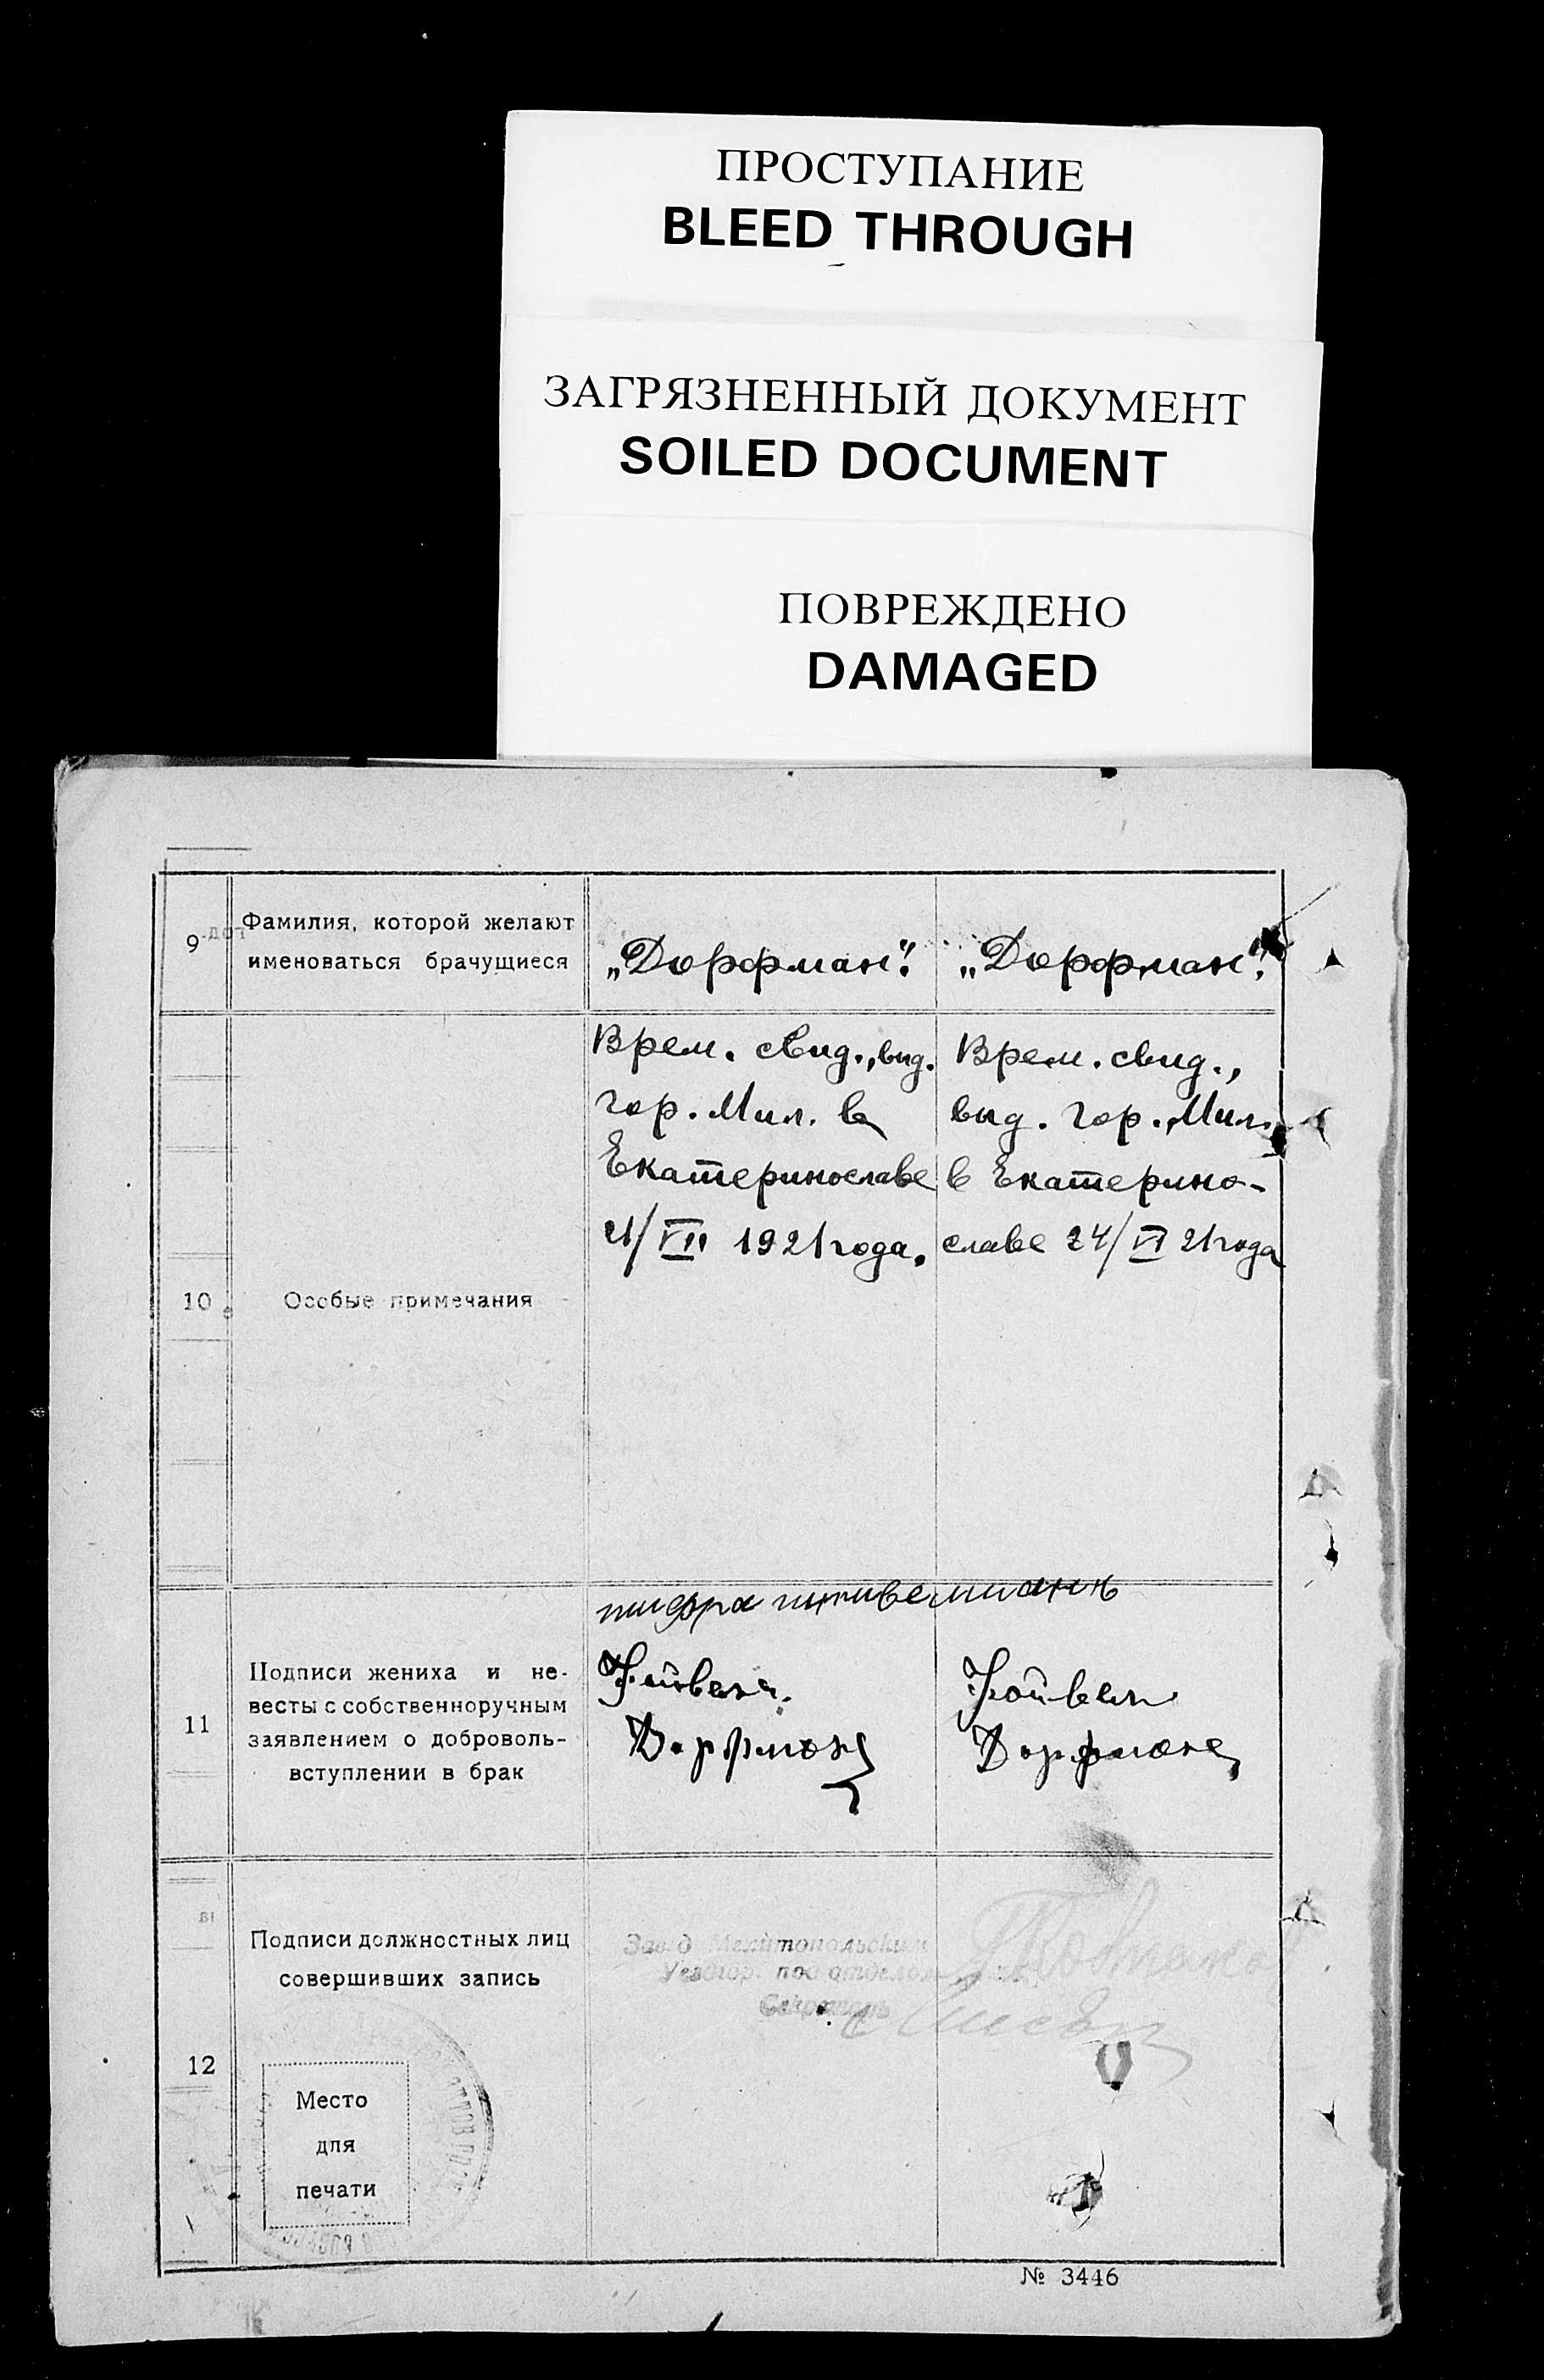 ПРОСТУПАНИЕ
BLEED THROUGH
ЗАГРЯЗНЕННЫЙ ДОКУМЕНТ
SOILED DOCUMENT
ПОВРЕЖДЕНО
DAMAGED
9
Фамилия, которой желают
именоваться брачущиеся
„Дорфман“.
„Дорфман“.
10
Особые примечания
Врем. свид., выд.
гор. Мил. в
Екатеринославе
21/VII 1921 года.
Врем. свид.,
выд. гор. Мил.
в Екатерино-
славе 24/VI 21 года
11
Подписи жениха и не-
весты с собственноручным
заявлением о доброволь-
вступлении в брак
Дорфман
Дорфман
12
Подписи должностных лиц
совершивших запись
Завед Мелитопольским
под отделом
Секретарь
Место
для
печати
№ 3446